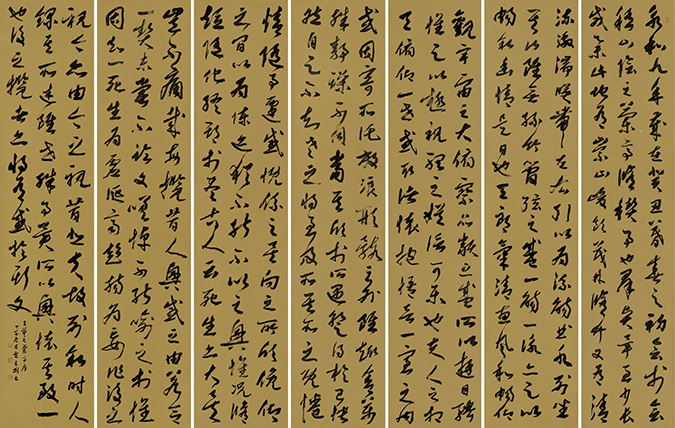 永和九年歲在癸丑暮春之初會於會
稽山陰之蘭亭脩禊事也羣賢畢至少長
咸集此地有崇山峻領茂林脩竹又有清
流激湍暎帶左右引以為流觴曲水列坐
其次雖無絲竹管弦之盛一觴一詠亦足以
暢叙幽情是日也天朗氣清惠風和暢仰
觀宇宙之大俯察品類之盛所以遊目騁
懷足以極視聽之娛信可樂也夫人之相
與俯仰一世或取諸懷抱悟言一室之內
或因寄所託放浪形骸之外雖趣舍萬
殊靜躁不同當其欣於所遇暫得於己快
然自足不知老之將至及其所之既惓
情隨事遷感慨係之矣向之所欣俛仰
之間以為陳迹猶不能不以之興懷況脩
短隨化終期於盡古人云死生亦大矣
豈不痛哉每攬昔人興感之由若合
一契未嘗不臨文嗟悼不能喻之於懷
固知一死生為虛誕齊彭殤為妄作後之
視今亦由今之視昔悲夫故列叙時人
錄其所述雖世殊事異所以興懷其致一
也後之攬者亦將有感於斯文
王羲之蘭亭序